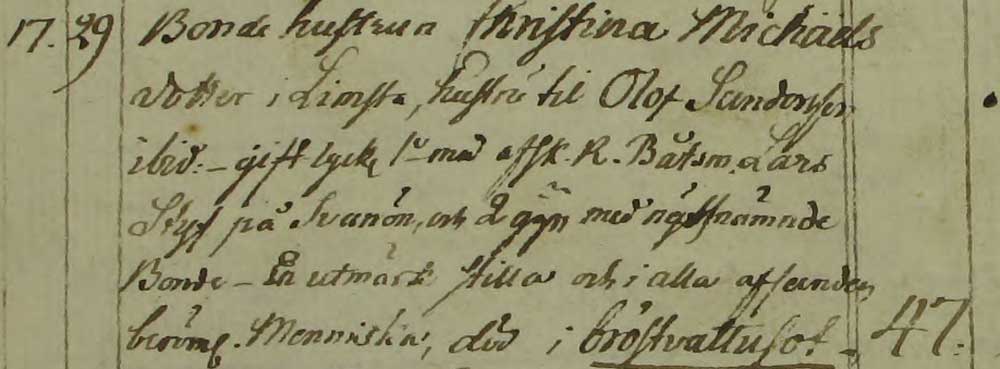 17. 29 Bonde hustrun Christina Michaels
dotter i Limsta, hustru til Olof Sanderson
ibid: – gift 1º med afsk. R. Båtsm. Lars
Styf på Svanön, och 2 gyn med näst nämnde
Bonde – En utmärkt stilla och i alla afseenden
berömd. Menniska, död i bröstvattusot – 47.